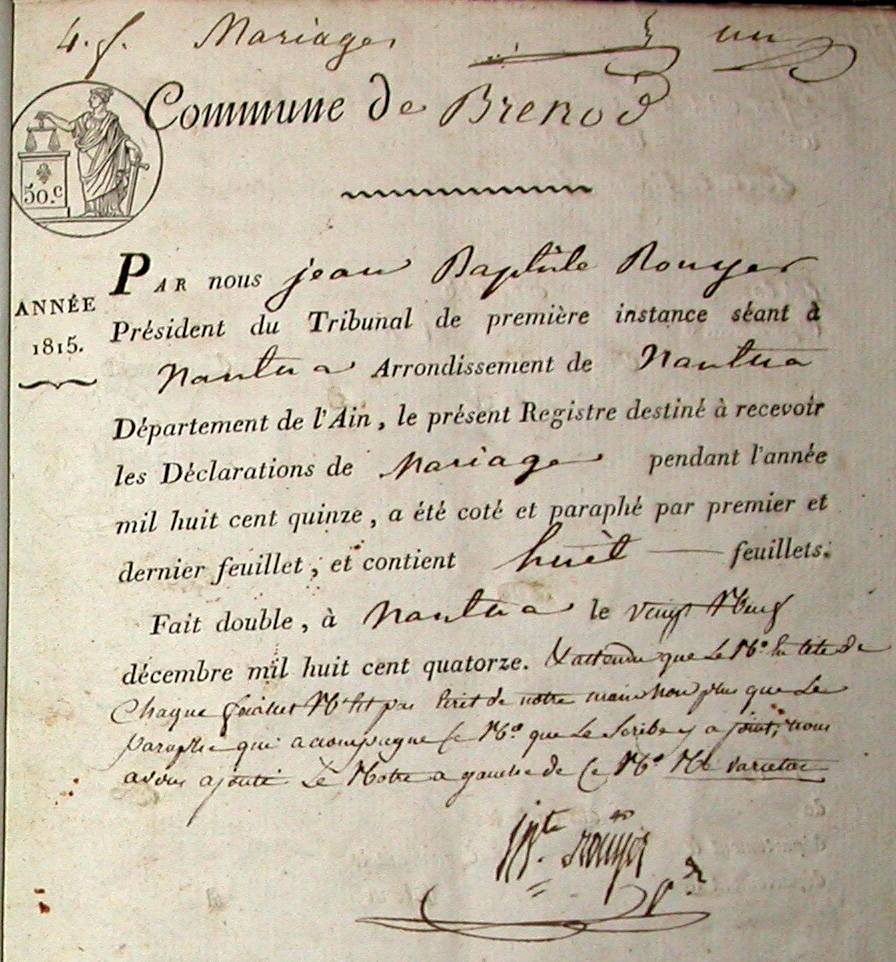 4. f. Mariages un
Commune de Brenod
50. c
ANNÉE
1815.
PAR nous jean Baptiste Rouyer
Président du Tribunal de première instance séant à
Nantua Arrondissement de Nantua
Département de l'Ain, le présent Registre destiné à recevoir
les Déclarations de Mariage pendant l'année
mil huit cent quinze, a été coté et paraphé par premier et
dernier feuillet, et contient huit feuillets.
Fait double, à Nantua le vingt Neuf
décembre mil huit cent quatorze. Et attendu que Le N.º en tête de
Chaque feuillet N'est pas Ecrit de notre main non plus que Le
paraphe qui accompagne ce N.º que Le Scribe y a joint, nous
avons ajouté Le Notre a gauche de Ce N.º Ne varietur
J. B.te Rouyer
P.r